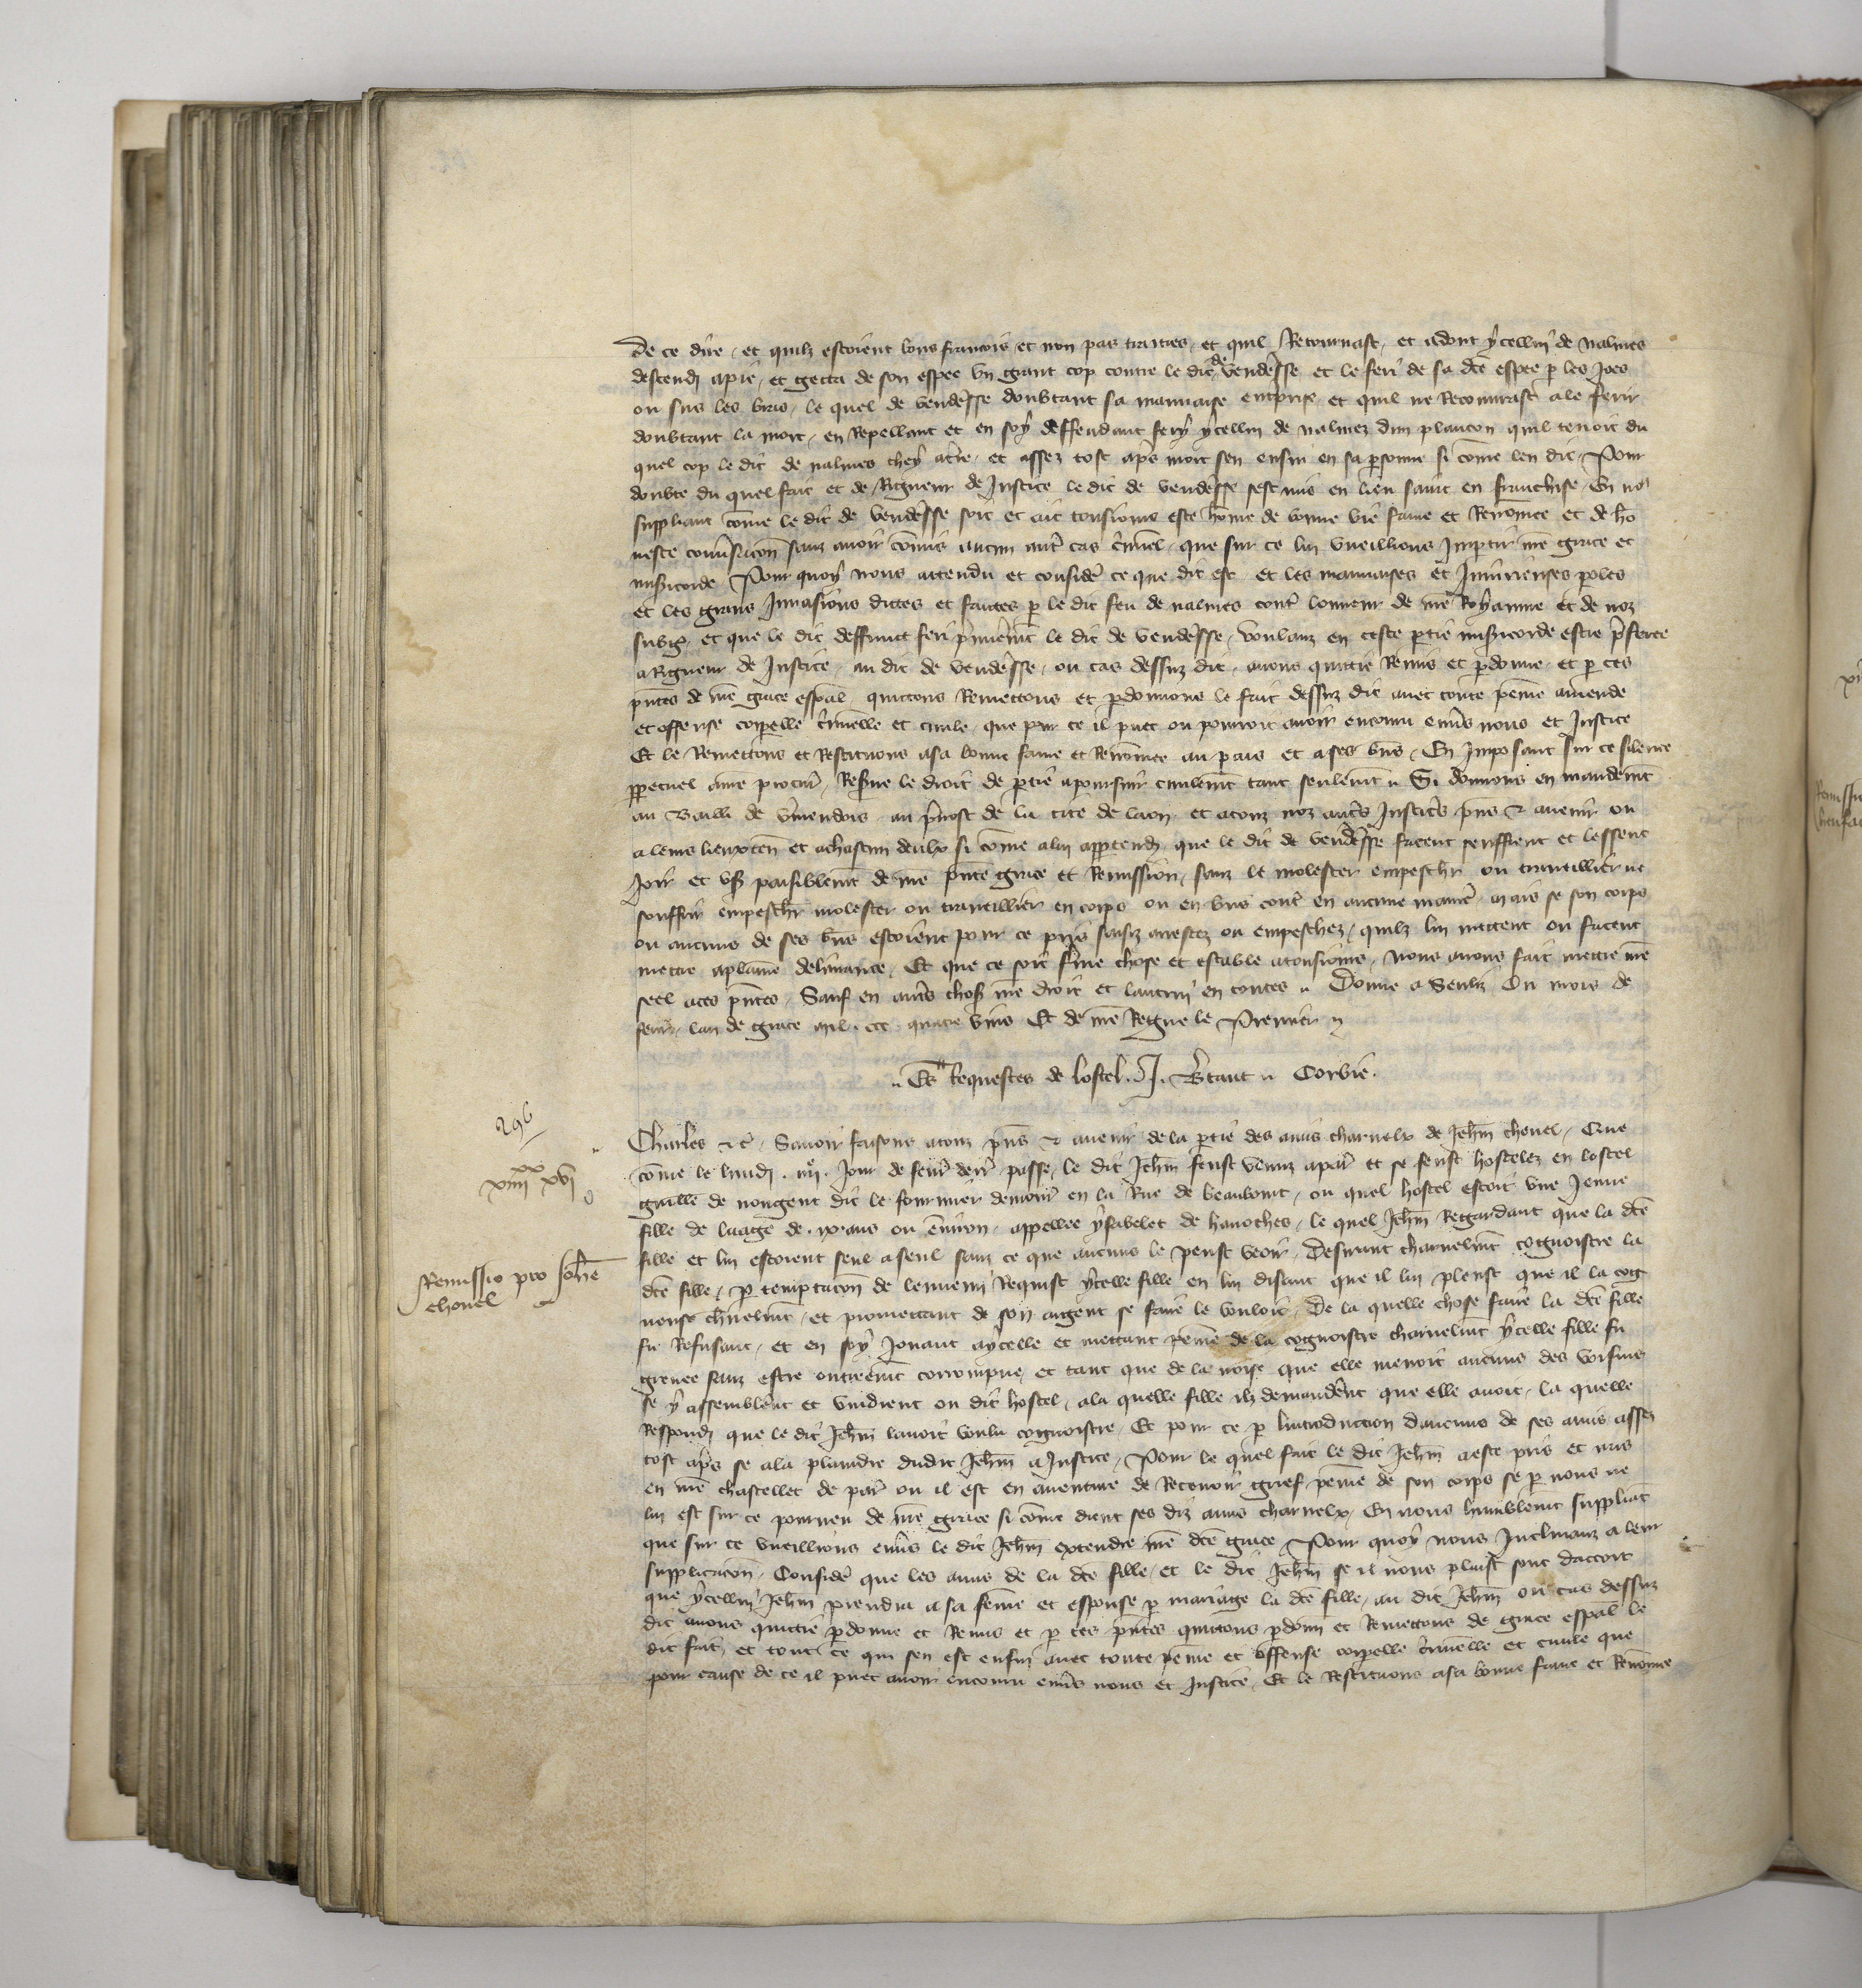 De ce dire, et quilz estoient bons francois et non pas traitres, et quil Retournast, et adont ycellui de nalines
descendi a pie, et getta de son espee un grant cop contre le dit de vendesse et le feri de sa dce espee p les Joes
ou sus les bras, le quel de vendesse doubtant sa mauuaise emprise et quil ne Recouurast a le ferir
doubtant la mort, en Repellant et en soy deffendant fery ycellui de nalines dun plancon quil tenoit du
quel cop le dit de nalines chey a tre, et assez tost aps mort sen ensui en sa psonne si come len dit, Pour
doubte du quel fait et de Rigueur de Justice le dit de vendesse sest mis en lieu saint en franchise, En no
suppliant come le dit de vendesse soit et ait tousiours este home de bonne vie fame et Renomee et de ho
neste conuersacon sanz auoir comis aucun autre cas criminel, que sur ce lui vueillions Impartir nre grace et
misericorde Pour quoy nous attendu et consider ce que dit est et les mauuaises et Iniurieuses poles
et les grans Inuasions dictes et faictes p le dit feu de nalines contr lonneur de nre Royaume et de noz
subgiz, et que le dit deffunct feri pmierement le dit de vendesse, voulanz en ceste ptie misericorde estre pferee
a Rigueur de Justice, au dit de vendesse, ou cas dessuz dit, auons quittie Remis et pdonne, et p ces
pntes de nre grace espal quittons Remettons et pdonnons le fait dessuz dit auec toute peine amende
et offense corpelle criminelle et ciuile, que pour ce il puet ou pourroit auoir encouru enuers nous et Justice
Et le Remettons et Restituons a sa bonne fame et Renomee au pais et a ses bns, En Imposant sur ce silence
ppetuel a nre procur, Reserue le droit de ptie a poursuir ciuilement tant seulement Si donnons en mandement
au Bailli de vermendois au preuost de la cite de laon et a touz noz autres Justiciers pns & auenir ou
a leurs lieuxten et a chascun deulx si come a lui apptendra, que le dit de vendesse facent seuffrent et lessent
Joir et user paisiblement de nre pnte grace et Remission, sanz le molester empeschr ou trauellier ne
souffrir empeschr molester ou trauillier en corps ou en bns contr en aucune manier mais se son corps
ou aucuns de ses bns estoient pour ce pris saisiz arrestez ou empeschez, quilz lui mettent ou facent
mettre a plaine deliurance, Et que ce soit ferme chose et estable a tousiours, Nous auons fait mettre nre
seel a ces pntes, Sauf en autres choses nre droit et lautrui en toutes Donne a Senliz Ou mois de
feurier, lan de grace mil ccc quatre vins Et de nre Regne le Premier
Es Requestes de lostel J. Btaut Corbie.
296
xiiii xx xvi
Remissio pro Johe chouel
Charles & c, Sauoir faisons a touz pns & auenir de la ptie des amis charnelx de Jehn chouel, Que
come le lundi iiije Jour de feurier derr passe, le dit Jehn feust venuz a paris et se feust hostelez en lostel
guille de nongent dit le fournier demour en la Rue de beaubourt, ou quel hostel estoit une Jeune
fille de laage de ix ans ou enuiron, appellee ysabelet de hanoches, le quel Jehn Regardant que la dce
fille et lui estoient seul a seul sanz ce que aucuns le peust veoir, Desirant charnelment cognoistre la
dce fille, p temptacon de lennemi Requist ycelle fille en lui disant que il lui pleust que il la cog
neust charnelment, et promettant de son argent se faire le vouloit, De la quelle chose faire la dce fille
fu Refusant, et en soy Jouant a ycelle et mettant peine de la cognoistre charnelment ycelle fille fu
greuee sanz estre entierement corrompue, et tant que de la noise que elle menoit aucuns des voisins
se y assemblerent et vindrent ou dit hostel, a la quelle fille ilz demanderent que elle auoit, la quelle
Respondi que le dit Jehn lauoit voulu cognoistre, Et pour ce p lintroduction daucuns de ses amis assez
tost aps se ala plaindre dudit Jehn a Justice, Pour le quel fait le dit Jehn a este pris et mis
en nre chastellet de paris ou il est en auenture de Receuoir grief peine de son corps se p nous ne
lui est sur ce pourueu de nre grace si come dient ses diz amis charnelx, En nous humblement suppliant
que sur ce vueillions enuers le dit Jehn extendre nre dce grace Pour quoy nous Inclinanz a leur
supplicacon, Consider que les amis de la dce fille, et le dit Jehn se il nous plaist sont dacort
que ycellui Jehn prendra a sa feme et espouse p mariage la dce fille, au dit Jehn ou cas dessuz
dit auons quittie pdonne et Remis et p ces pntes quittons pdonn et Remettons de grace espal le
dit fait, et tout ce qui sen est ensui auec toute peine et offense corpelle criminelle et ciuile que
pour cause de ce il puet auoir encouru enuers nous et Justice, Et le Restituons a sa bonne fame et Renomee